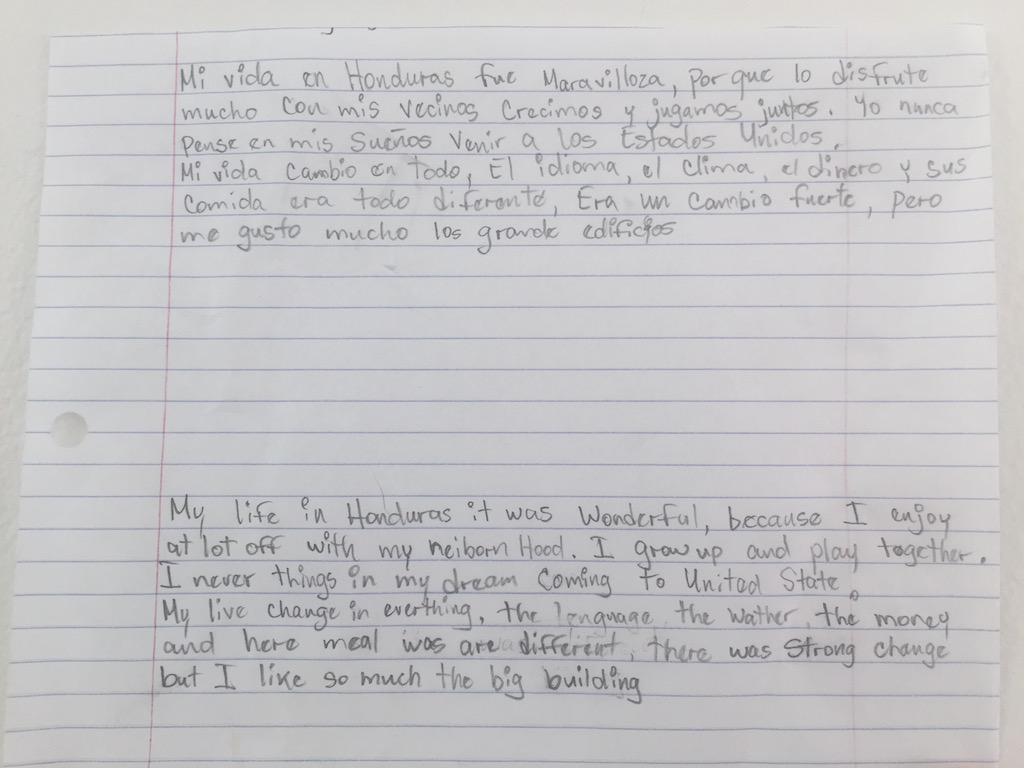 Mi vida en Honduras fue Maravilloza, por que lo disfrute
mucho con mis vecinos Crecimos y jugamos juntos. Yo nunca
pense en mis Sueños Venir a los Estados Unidos.
Mi vida cambio en todo, El idioma, el clima, el dinero y sus
comida era todo diferente, Era un cambio fuerte, pero
me gusto mucho los grande edificios
My life in Honduras it was Wonderful, because I enjoy
at lot off with my neiborn Hood. I grow up and play together.
I never things in my dream Coming to United State.
My live change in everthing, the lenguage, the wather, the money
and here meal was are different, there was Strong change
but I like so much the big building